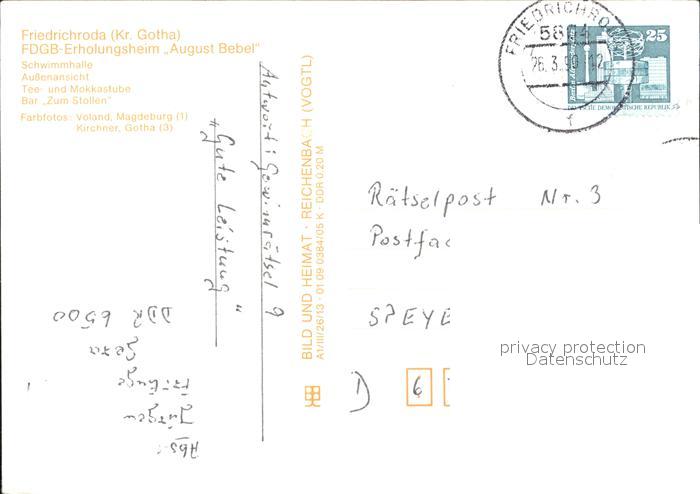 Friedrichroda (Kr. Gotha)
FDGB-Erholungsheim „August Bebel"
Schwimmhalle
Außenansicht
Tee- und Mokkastube
Bar „Zum Stollen"
Farbfotos: Voland, Magdeburg (1)
Kirchner, Gotha (3)
Antwort: Gewinnrätsel 9
"Gute Leistung"
Abs.:
Jürgen
Gera
DDR 6500
BILD UND HEIMAT · REICHENBACH (VOGTL)
A1/III/26/13 · 01 09 0384/05 K · DDR 0,20 M
FRIEDRICHRO
5804
26.3.90-12
f
25
DEMOKRATISCHE REPUBLIK
Rätselpost Nr. 3
Postfac
SPEYE
D 6
privacy protection
Datenschutz